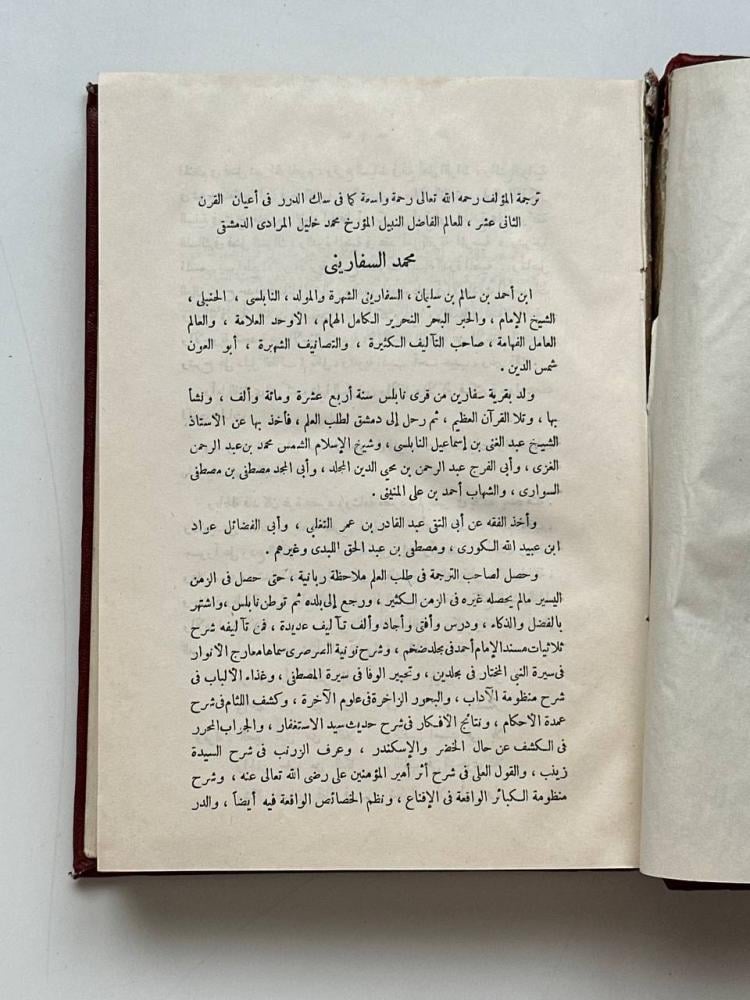 ترجمة المؤلف رحمه الله تعالى رحمة واسعة كما فى سلك الدرر فى أعيان القرن
الثانى عشر ، للعالم الفاضل النبيل المؤرخ محمد خليل المرادى الدمشقى
محمد السفارينى
ابن أحمد بن سالم بن سليمان ، السفارينى الشهرة والمولد ، النابلسى ، الحنبلى ،
الشيخ الإمام ، والحبر البحر النحرير الكامل الهمام ، الأوحد العلامة ، والعالم
العامل الفهامة ، صاحب التآليف الكثيرة ، والتصانيف الشهيرة ، أبو العون
شمس الدين .
ولد بقرية سفارين من قرى نابلس سنة أربع عشرة ومائة وألف ، ونشأ
بها ، وتلا القرآن العظيم ، ثم رحل إلى دمشق لطلب العلم ، فأخذ بها عن الأستاذ
الشيخ عبد الغنى بن إسماعيل النابلسى ، وشيخ الإسلام الشمس محمد بن عبد الرحمن
الغزى ، وأبى الفرج عبد الرحمن بن محيى الدين المجلد ، وأبى المجد مصطفى بن مصطفى
السوارى ، والشهاب أحمد بن على المنينى .
وأخذ الفقه عن أبى التقى عبد القادر بن عمر التغلبى ، وأبى الفضائل عواد
ابن عبيد الله الكورى ، ومصطفى بن عبد الحق اللبدى وغيرهم .
وحصل لصاحب الترجمة فى طلب العلم ملاحظة ربانية ، حتى حصل فى الزمن
اليسير مالم يحصله غيره فى الزمن الكثير ، ورجع إلى بلده ثم توطن نابلس ، واشتهر
بالفضل والذكاء ، ودرس وأفتى وأجاد وألف تآليف عديدة ، فمن تآليفه شرح
ثلاثيات مسند الإمام أحمد فى مجلد ضخم ، وشرح نونية الصرصرى سماها معارج الأنوار
فى سيرة النبى المختار فى مجلدين ، وتحبير الوفا فى سيرة المصطفى ، وغذاء الألباب فى
شرح منظومة الآداب ، والبحور الزاخرة فى علوم الآخرة ، وكشف اللثام فى شرح
عمدة الأحكام ، ونتائج الأفكار فى شرح حديث سيد الاستغفار ، والجراب المحرر
فى الكشف عن حال الخضر والإسكندر ، وعرف الزرنب فى شرح السيدة
زينب ، والقول العلى فى شرح أثر أمير المؤمنين على رضى الله تعالى عنه ، وشرح
منظومة الكبائر الواقعة فى الإقناع ، ونظم الخصائص الواقعة فيه أيضاً ، والدر